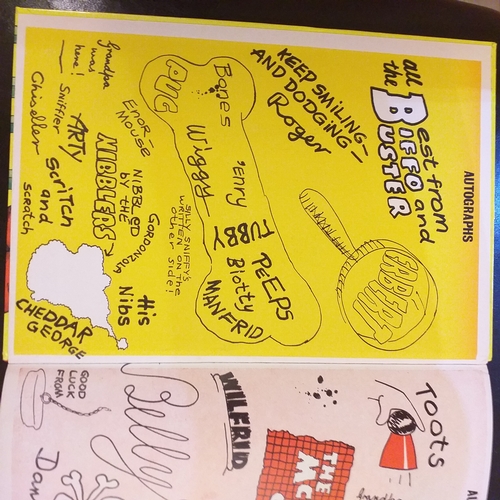 AUTOGRAPHS
all Best from
the BIFFO and
BUSTER
KEEP SMILING-
AND DODGING-
Roger
ERBERT
Bones
PUG
'Enry
Wiggy
TUBBY
PeEPS
Blotty
MANFRID
SILLY SNIFFY'S
WRITTEN ON THE
other side!
Enor-
Mouse
NIBBLED
BY THE
NIBBLERS
GORGONZOLA
His
Nibs
Grandpa
was
here!
ARTY
Sniffler
Chiseller
SCRITCH
and
scratch
CHEDDAR
GEORGE
Toots
THE
WILFRID
GOOD
LUCK
FROM
Dan